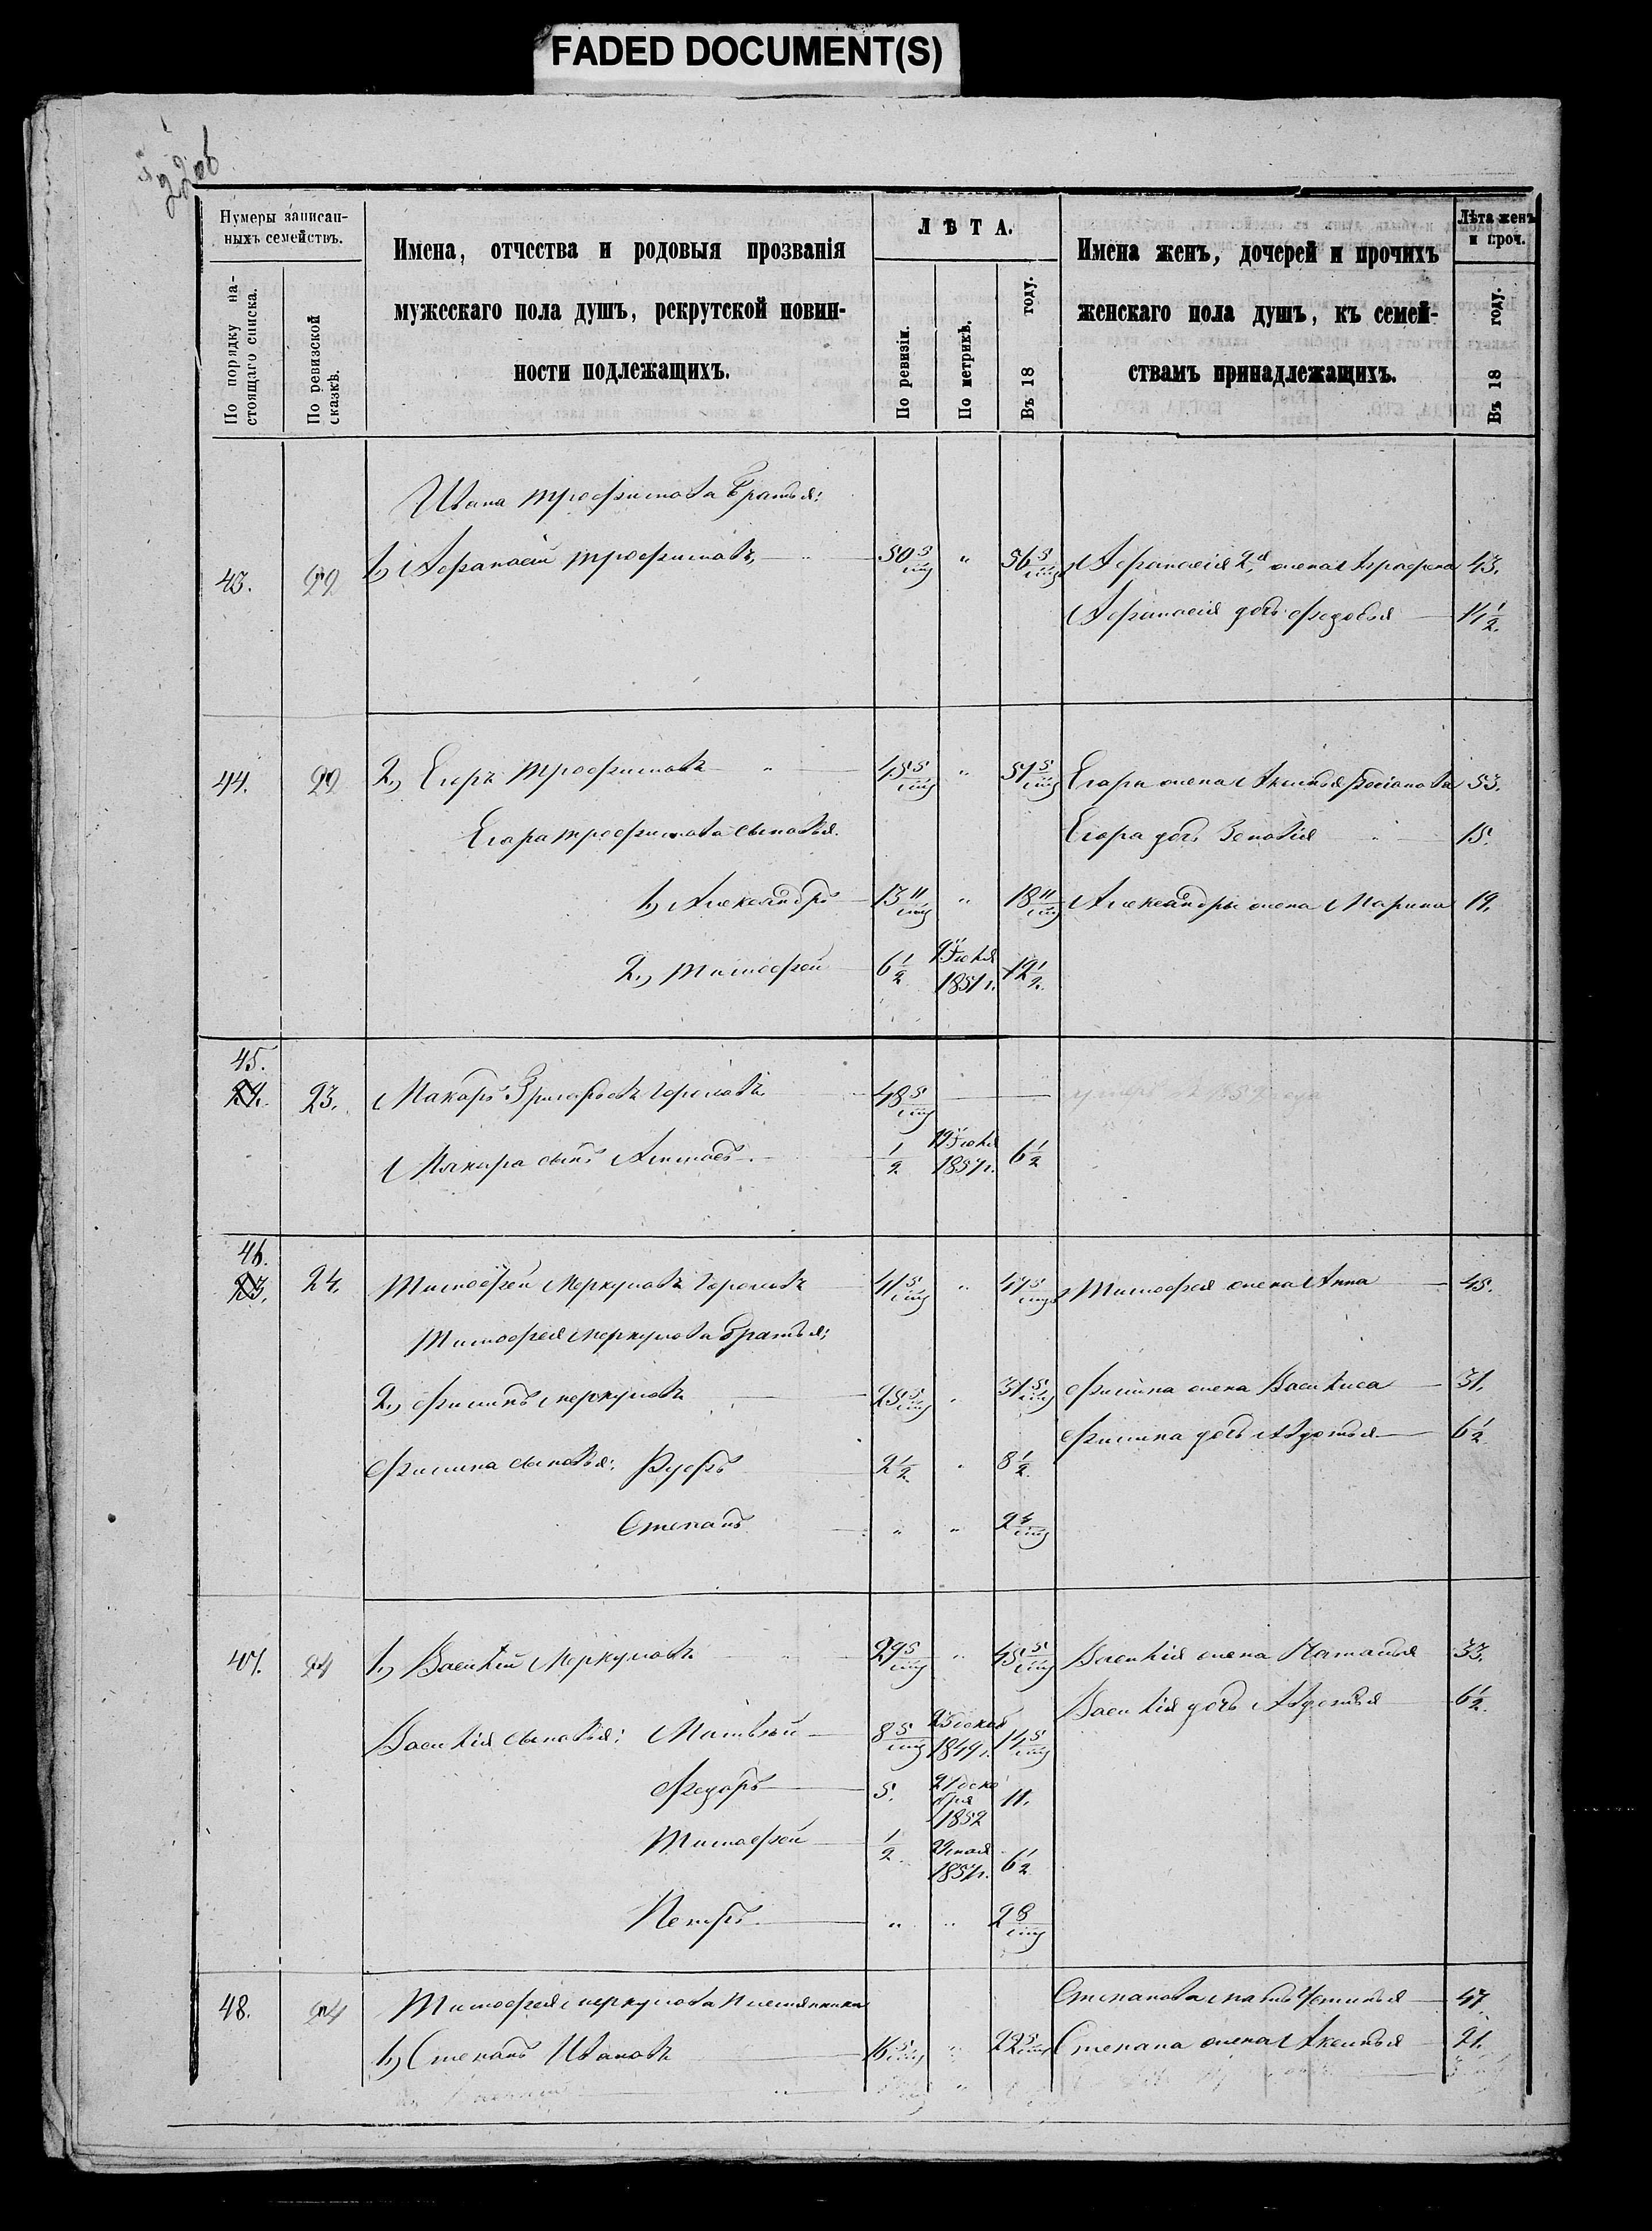 FADED DOCUMENT(S)
22об
Нумеры записан-
ныхъ семействъ.
По порядку на-
стоящаго списка.
По ревизской
сказкѣ.
Имена, отчества и родовыя прозванія
мужескаго пола душъ, рекрутской повин-
ности подлежащихъ.
ЛѢТА.
По ревизіи.
По метрикѣ.
Въ 18 году.
Имена женъ, дочерей и прочихъ
женскаго пола душъ, къ семей-
ствамъ принадлежащихъ.
Лѣта женъ
и проч.
Въ 18 году.
Ивана Трофимова братья:
43. 22 1) Афанасій Трофимовъ 50 5/мц " 56 5/мц Афанасія 2я жена Аграфена 43.
Афанасія дочь Федосья 14 1/2.
44. 22 2) Егоръ Трофимовъ " 45 5/мц " 51 5/мц Егора жена Акилина 53.
Егора Трофимова сыновья Егора дочь Зеновія 15.
1) Александръ 13 11/мц " 18 11/мц Александры жена Марина 19.
2) Тимофей 6 1/2 1851 г. 12 1/2.
45.
24. 23. Макаръ Григорьевъ 48 5/мц умеръ въ 1859 года
Макара сынъ 1/2 1857 г. 6 1/2
46.
23. 24. Тимофей Меркуловъ 41 5/мц " 47 5/мц Тимофея жена Анна 45.
Тимофея Меркулова братья;
2) Филипъ Меркуловъ 25 5/мц " 31 5/мц Филипа жена Василиса 31.
Филипа дочь Авдотья 6 1/2
Филипа сыновья: 2 1/2 " 8 1/2.
Степанъ " " 2 4/мц
47. 24 1) Василій Меркуловъ 29 5/мц " 45 5/мц Василія жена Наталья 33.
Василія дочь Авдотья 6 1/2.
Василія сыновья: Матвѣй 8 5/мц 1849 г. 14 5/мц
Федоръ 5. 21 дека
бря
1852 11.
Тимофей 1/2 мая
1857 г. 6 1/2
Петръ " " 2 8/мц
48. 24 Тимофея Меркулова племянники Степанова мать Устинья 47.
1) Степанъ Ивановъ 16 5/мц " 22 5/мц Степана жена Акилина 21.